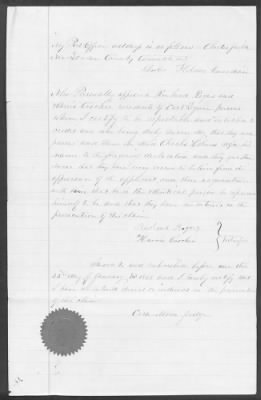 My Post Office address is as follows: Chesterfield
New London County Connecticut
Charles Holmes Guardian
Also Personally appeared Rowland Rogers and
Harris residents of East Lyme persons
whom I certify to be respectable and entitled to
credit and who being duly sworn say that they were
present and saw Charles Holmes sign his
name to the foregoing declaration and they further
swear that they have every reason to believe from the
appearance of the applicant and their acquaintance
with him that he is the identical person he represents
himself to be and that they have no interest in the
prosecution of this claim.
Rowland Rogers
Harris
Sworn to and subscribed before me this
day of January 1868 and I hereby certify that
I have no interest direct or indirect in the prosecution
of this claim
Judge